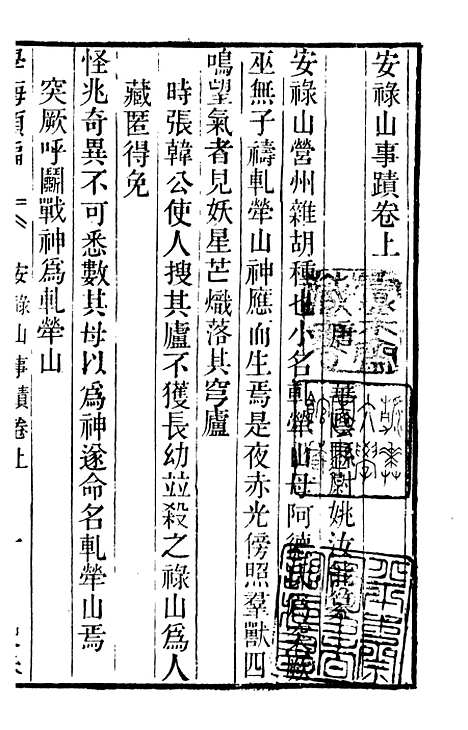 安祿山事蹟卷上
唐 華陰縣尉姚汝能
安祿山營州雜胡種也小名軋犖山母阿德
巫無子禱軋犖山神應而生焉是夜赤光傍照羣獸四
鳴望氣者見妖星芒熾落其穹廬
時張韓公使人搜其廬不獲長幼並殺之祿山爲人
藏匿得免
怪兆奇異不可悉數其母以爲神遂命名軋犖山焉
突厥呼鬭戰神爲軋犖山
學海類編
安祿山事蹟卷上
一